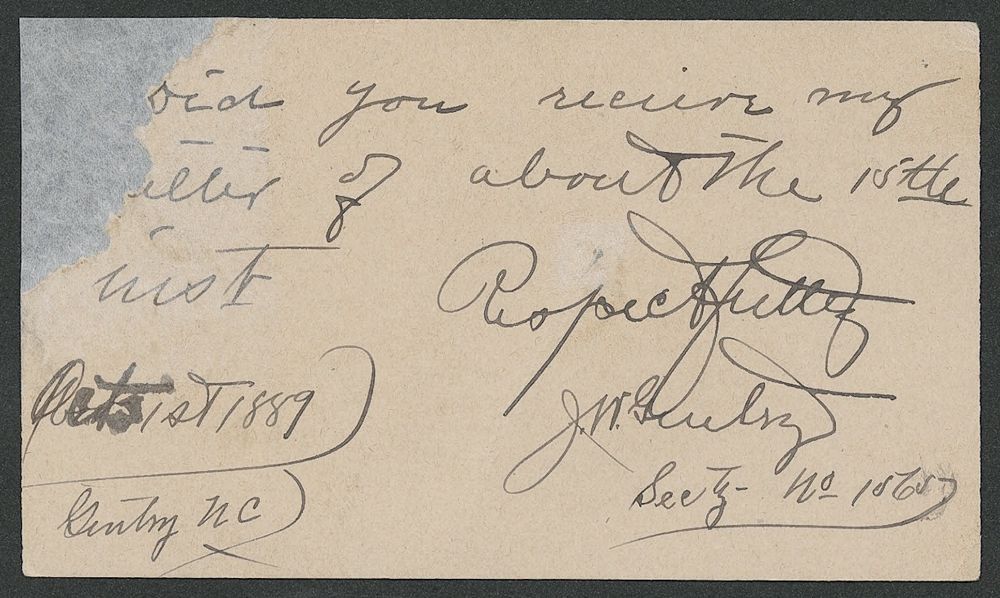 Did you recieve my
letter of about the 15th
inst
Respectfully
Oct 1st 1889
J. W. Gentry
Gentry NC
Secty - No 1565